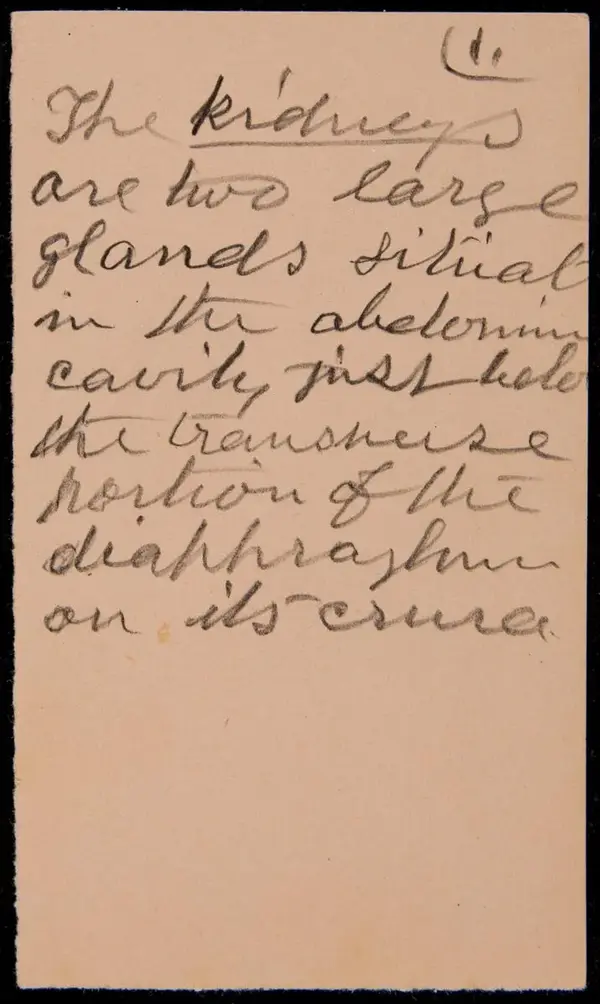 (1.
The kidneys
are two large
glands situat
in the abdomin
cavity, just belo
the transverse
portion of the
diaphraghm
on its crura